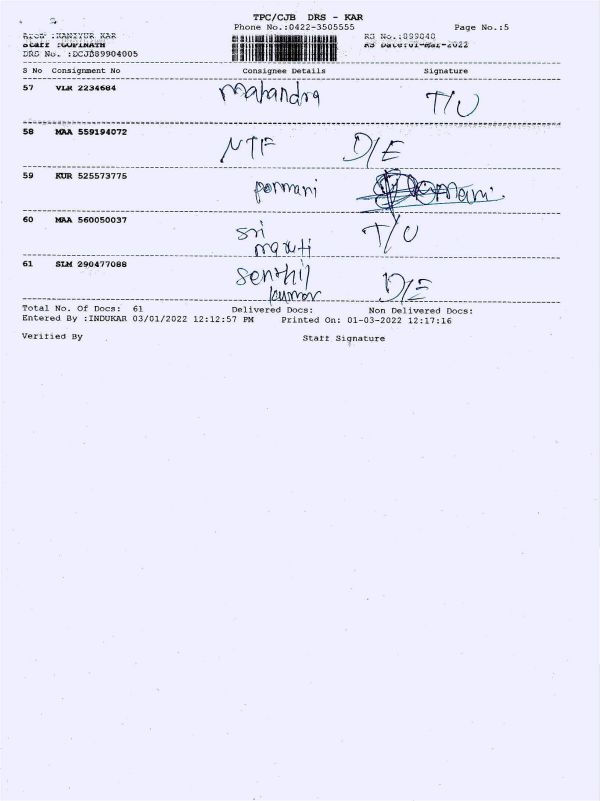 TPC/CJB DRS - KAR
Phone No.:0422-3505555 Page No.:5
Area :KANIYUR KAR RS No.:899040
Staff :GOPINATH RS Date:01-Mar-2022
DRS No. :DCJB89904005
S No Consignment No Consignee Details Signature
57 VLR 2234684 mahandra T/U
58 MAA 559194072 NTF D/E
59 KUR 525573775 ponmani
60 MAA 560050037 sri maruti T/U
61 SLM 290477088 Senthil kumar D/E
Total No. Of Docs: 61 Delivered Docs: Non Delivered Docs:
Entered By :INDUKAR 03/01/2022 12:12:57 PM Printed On: 01-03-2022 12:17:16
Verified By Staff Signature